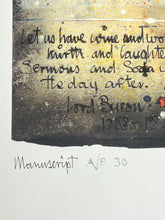 Let us have wine and wo
mirth and laughte
Sermons and Soda w
the day after.
Lord Byron
Manuscript A/P 30